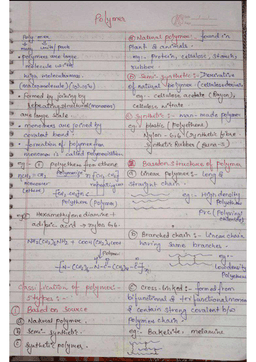 Polymer
Poly mer
many unit/part
• Polymers are large
molecule with
high molecularmass
(macromolecule)
• Formed by joining by
repeating structural (monomer)
on large scale.
• monomers are joined by
covalent bond.
• formation of polymer from
monomer is called polymerisation.
eg:- ① Polythene from ethene
nCH2 = CH2
Polythene (Polymer)
Hexamethylene diamine +
adipic acid → nylon 6,6
Classification of polymers:-
① Based on Source
ⓐ Natural Polymer.
ⓑ Semi-Synthetic.
ⓒ Synthetic polymer.
ⓐ Natural polymer found in
Plant & animals.
eg:- Protein, cellulose, starch,
rubber.
ⓑ Semi-Synthetic:- Derivative
of natural polymer
eg:- cellulose acetate (Rayon),
cellulose nitrate
ⓒ Synthetic:- man-made polymer
eg:- plastic (Polythene)
Nylon-6,6 (synthetic fibre
Synthetic Rubber (Buna-S)
Based on Structure of Polymer
ⓐ Linear Polymers:- long &
Straight chain.
eg:- High density
Polythene
PVC
ⓑ Branched chain:- Linear chain
having some branches.
eg:-
low density
Polythene
ⓒ Cross-linked:- formed from
bifunctional & tri functional monomer
& contain strong covalent b/w
Polymer chain.
eg:- Bakelite, melamine